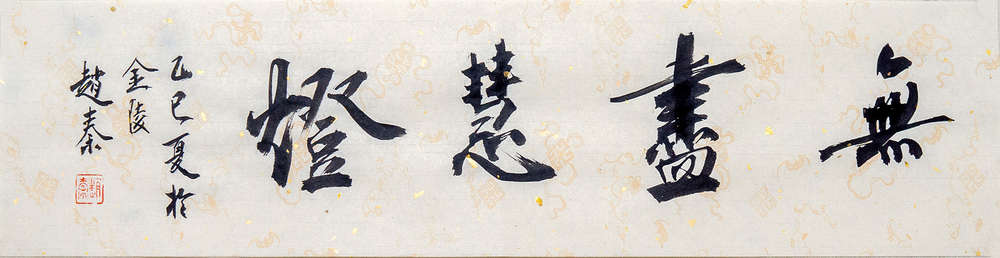 無盡慧燈
乙巳夏於
金陵
趙秦